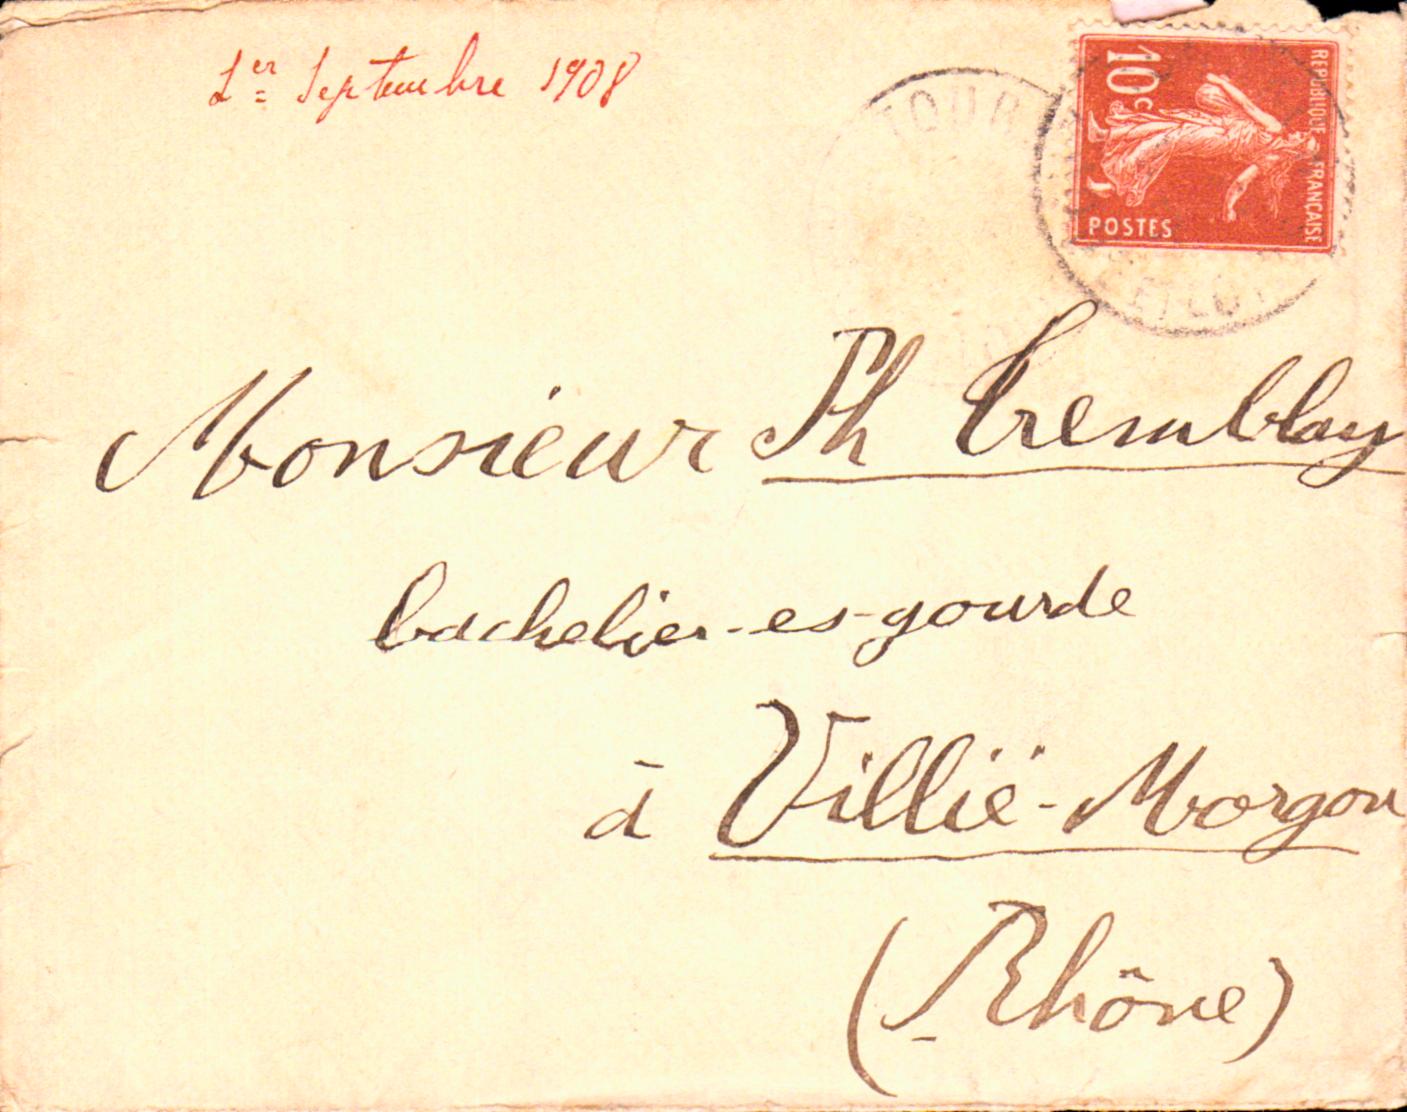 1er Septembre 1908
10c
REPUBLIQUE FRANÇAISE
POSTES
TOUR
Monsieur Th Tremblay
bachelier-es-gourde
à Villië-Morgon
(Rhône)